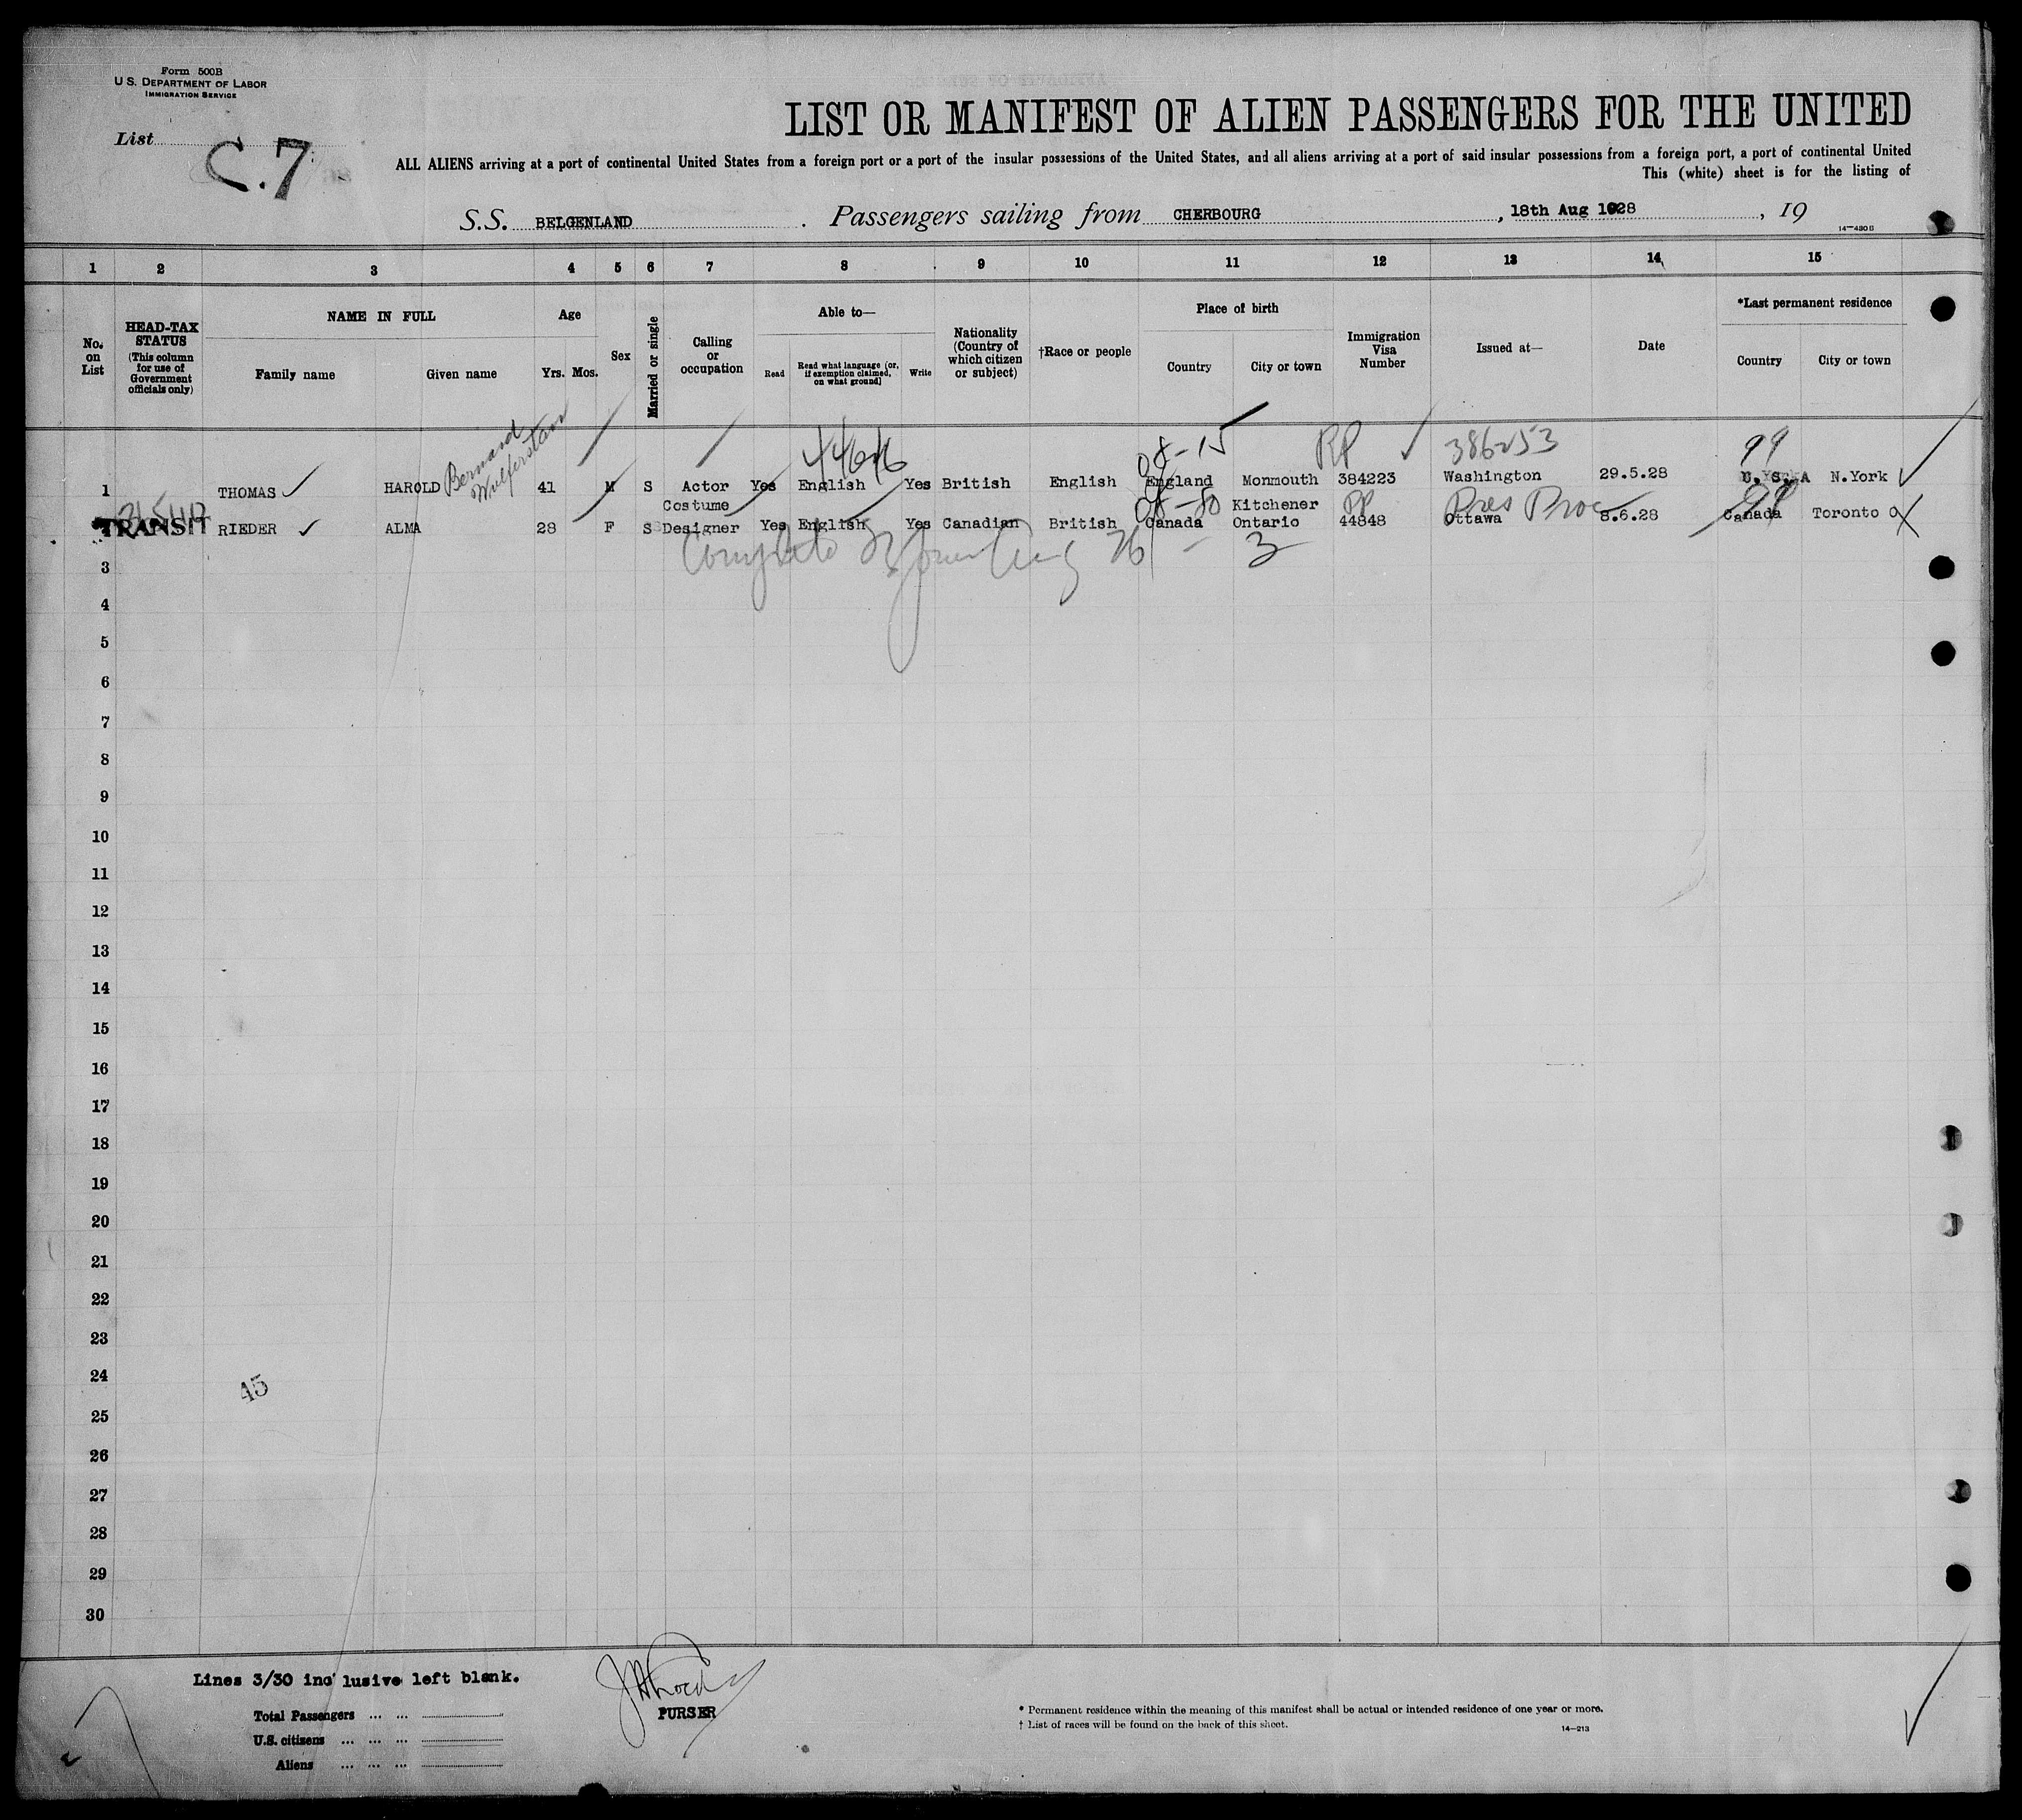 Form 500B
U.S. DEPARTMENT OF LABOR
IMMIGRATION SERVICE
List C.7
LIST OR MANIFEST OF ALIEN PASSENGERS FOR THE UNITED
ALL ALIENS arriving at a port of continental United States from a foreign port or a port of the insular possessions of the United States, and all aliens arriving at a port of said insular possessions from a foreign port, a port of continental United
This (white) sheet is for the listing of
S.S. BELGENLAND . Passengers sailing from CHERBOURG , 18th Aug 1928 , 19
14—430B
1 2 3 4 5 6 7 8 9 10 11 12 13 14 15
No. on List
HEAD-TAX STATUS (This column for use of Government officials only)
NAME IN FULL
Family name Given name
Age
Yrs. Mos.
Sex
Married or single
Calling or occupation
Able to—
Read Read what language (or, if exemption claimed, on what ground) Write
Nationality (Country of which citizen or subject)
†Race or people
Place of birth
Country City or town
Immigration Visa Number
Issued at—
Date
*Last permanent residence
Country City or town
Bernard
08-15 RP 386253 99
1 THOMAS HAROLD 41 M S Actor Yes English Yes British English England Monmouth 384223 Washington 29.5.28 U.S.A N.York
Costume 08-80 Kitchener PP 99
TRANSIT RIEDER ALMA 28 F S Designer Yes English Yes Canadian British Canada Ontario 44848 Ottawa 8.6.28 Canada Toronto
3
3
4
5
6
7
8
9
10
11
12
13
14
15
16
17
18
19
20
21
22
23
24
45
25
26
27
28
29
30
Lines 3/30 inclusive left blank.
PURSER
Total Passengers ... ...
U.S. citizens ... ... ...
Aliens ... ... ...
* Permanent residence within the meaning of this manifest shall be actual or intended residence of one year or more.
† List of races will be found on the back of this sheet.
14—213